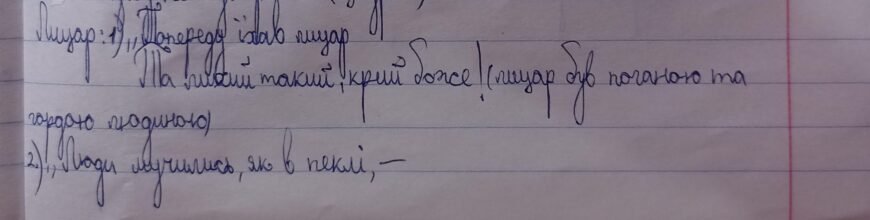 Лицар: 1) „Попереду їхав лицар
Та пихий такий, крий боже! (лицар був поганою та
гордою людиною)
2) „Люди мучились, як в пеклі, —